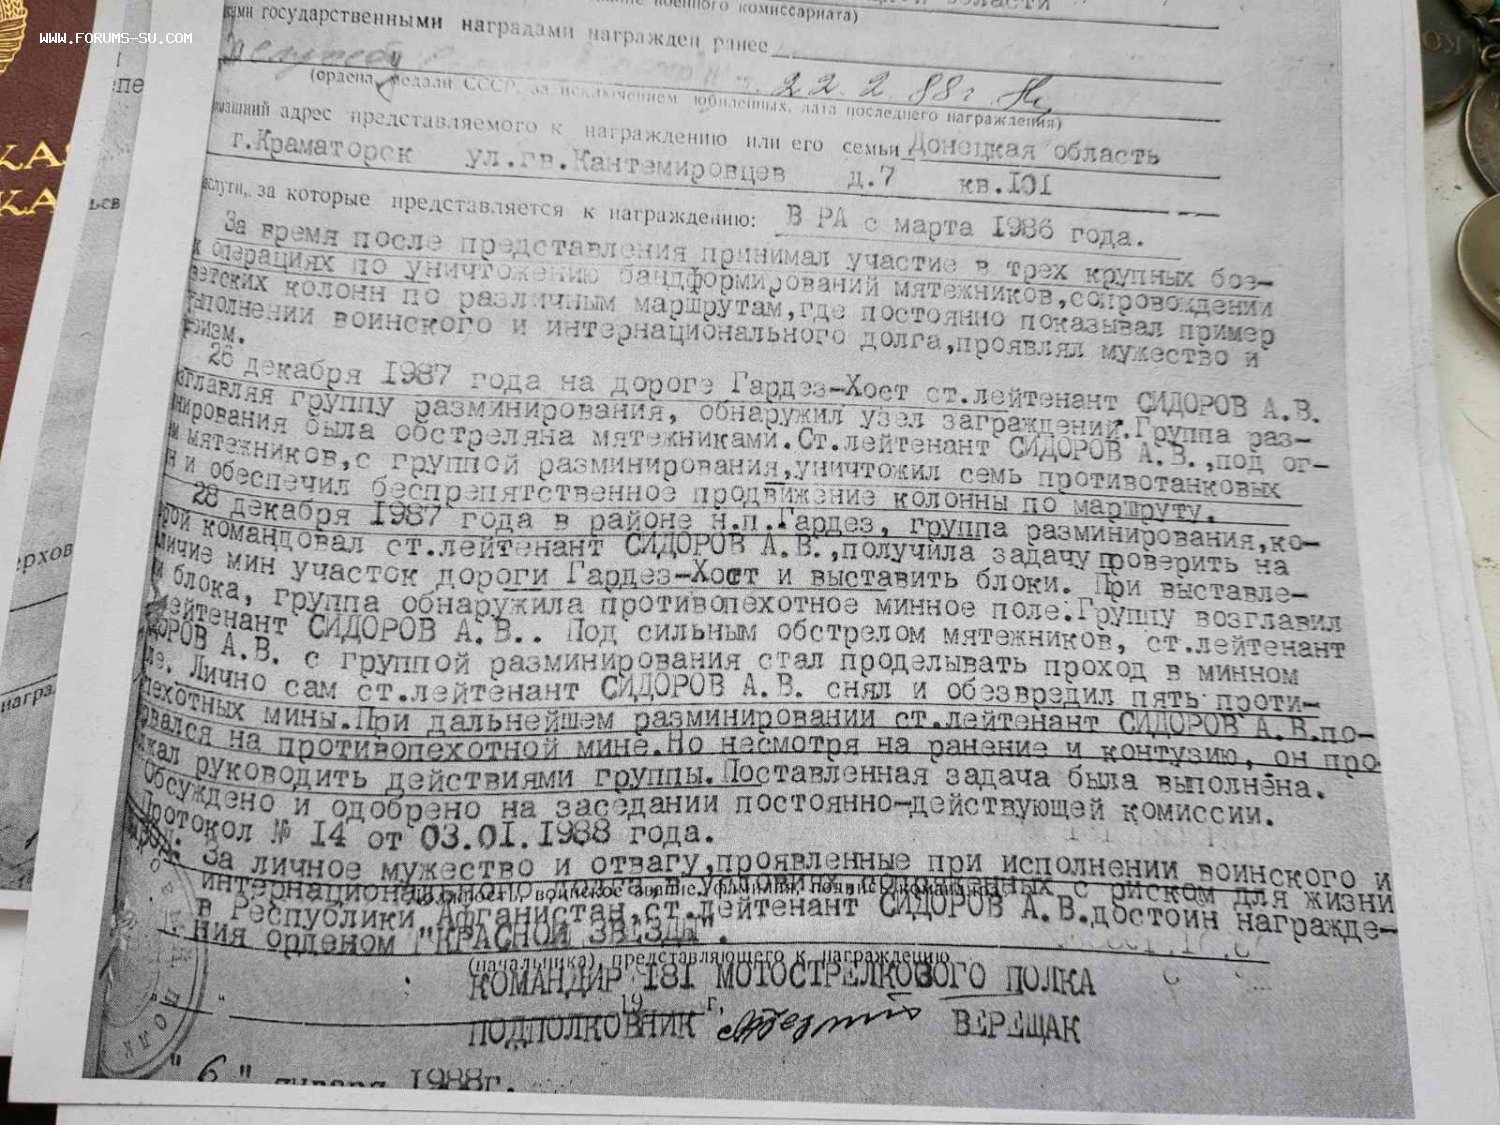 WWW.FORUMS-SU.COM
военного комиссариата)
государственными наградами награжден ранее
22.2 88г.
(ордена, медали СССР, за исключением юбилейных, дата последнего награждения)
адрес представляемого к награждению или его семьи Донецкая область
г.Краматорск ул.гв.Кантемировцев д.7 кв.101
слуги, за которые представляется к награждению: В РА с марта 1986 года.
За время после представления принимал участие в трех крупных бое-
х операциях по уничтожению бандформирований мятежников,сопровождении
ветских колонн по различным маршрутам,где постоянно показывал пример
ыполнении воинского и интернационального долга,проявлял мужество и
изм.
26 декабря 1987 года на дороге Гардез-Хост ст.лейтенант СИДОРОВ А.В.
зглавляя группу разминирования, обнаружил узел заграждений.Группа раз-
нирования была обстреляна мятежниками.Ст.лейтенант СИДОРОВ А.В.,под ог-
м мятежников,с группой разминирования,уничтожил семь противотанковых
н и обеспечил беспрепятственное продвижение колонны по маршруту.
28 декабря 1987 года в районе н.п.Гардез, группа разминирования,ко-
рой командовал ст.лейтенант СИДОРОВ А.В.,получила задачу проверить на
личие мин участок дороги Гардез-Хост и выставить блоки. При выставле-
и блока, группа обнаружила противопехотное минное поле.Группу возглавил
лейтенант СИДОРОВ А.В.. Под сильным обстрелом мятежников, ст.лейтенант
ДОРОВ А.В. с группой разминирования стал проделывать проход в минном
ле. Лично сам ст.лейтенант СИДОРОВ А.В. снял и обезвредил пять проти-
пехотных мины.При дальнейшем разминировании ст.лейтенант СИДОРОВ А.В.по-
рвался на противопехотной мине.Но несмотря на ранение и контузию, он про-
лжал руководить действиями группы.Поставленная задача была выполнена.
Обсуждено и одобрено на заседании постоянно-действующей комиссии.
Протокол № 14 от 03.01.1988 года.
За личное мужество и отвагу,проявленные при исполнении воинского и
интернационального долга в условиях сопряженных с риском для жизни
в Республики Афганистан,ст.лейтенант СИДОРОВ А.В.достоин награжде-
ния орденом "КРАСНОЙ ЗВЕЗДЫ".
(начальника), представляющего к награждению
КОМАНДИР 181 МОТОСТРЕЛКОВОГО ПОЛКА
19 г.
ПОДПОЛКОВНИК ВЕРЕЩАК
"6" января 1988г.